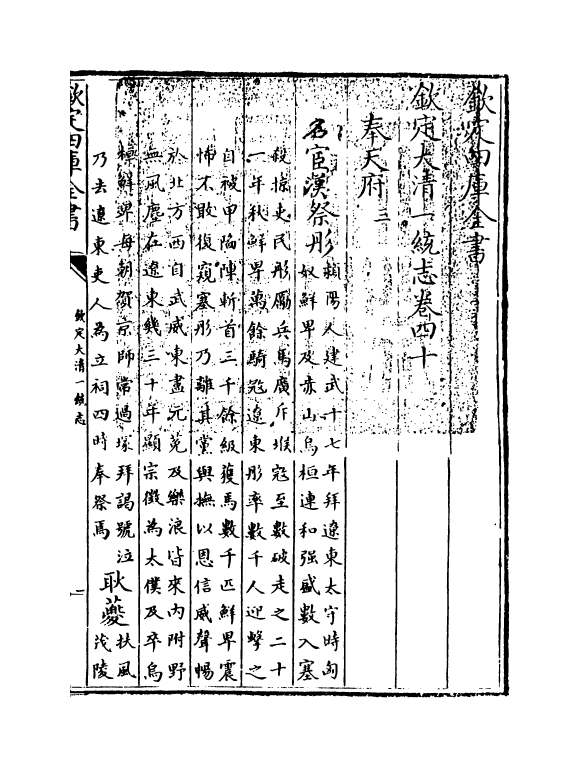 欽定四庫全書
欽定大清一統志卷四十
奉天府三
名宦漢祭肜
潁陽人建武十七年拜遼東太守時匈
奴鮮卑及赤山烏桓連和强盛數入塞
殺掠吏民肜勵兵馬廣斥堠寇至數破走之二十
一年秋鮮卑萬餘騎寇遼東肜率數千人迎擊之
自被甲陷陣斬首三千餘級獲馬數千匹鮮卑震
怖不敢復窺塞肜乃離其黨與撫以恩信威聲暢
於北方西自武威東盡元菟及樂浪皆來內附野
無風塵在遼東幾三十年顯宗徵為太僕及卒烏
桓鮮卑每朝賀京師常過塚拜謁號泣
乃去遼東吏人為立祠四時奉祭焉
耿夔
扶風
茂陵
欽定四庫全書
欽定大清一統志
一